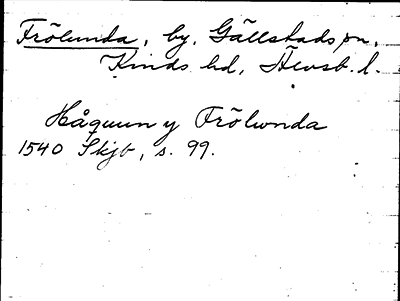 Frölunda, by, Gällstads sn,
Kinds hd, Älvsb. l.
Håquun y Frölwnda
1540 Skjb, s. 99.